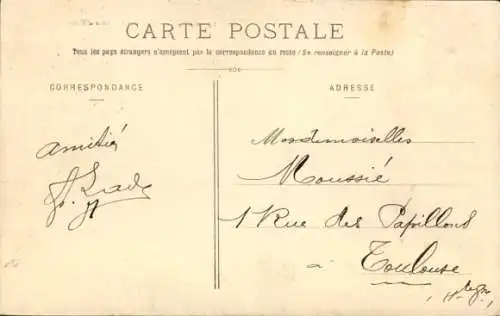 CARTE POSTALE
Tous les pays étrangers n'acceptent pas la correspondance au recto (Se renseigner à la Poste)
CORRESPONDANCE
ADRESSE
Amitié
Mesdemoiselles
Moussié
1 Rue des Papillons
à Toulouse